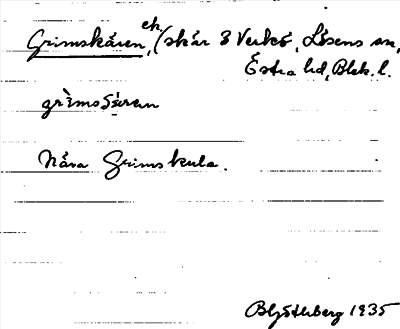 Grimskären, ek. (skär S Verkö, Lösens sn,
Östra hd, Blek. l.
grimsšæran
Nära Grimskula.
1935